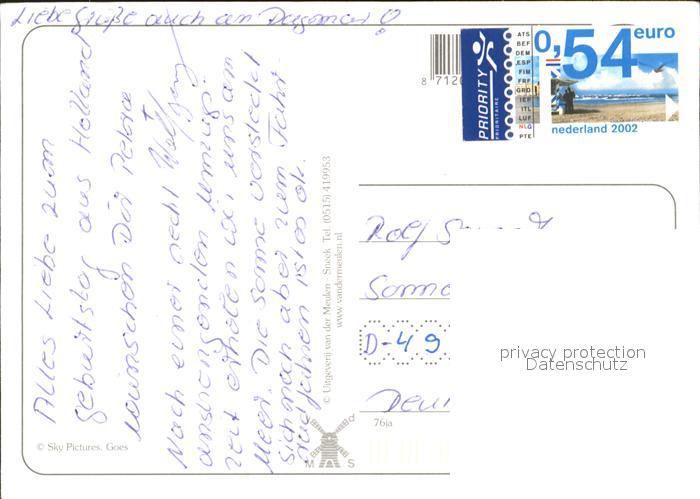 Liebe Grüße auch an Dagmar!
Alles Liebe zum
Geburtstag aus Holland
wünschen Dir Petra
Wolfgang
Nach einer recht
anstrengenden Umzugs-
zeit erholen wir uns am
Meer. Die Sonne versteckt
sich noch aber zum Fahr-
radfahren ist es ok.
© Sky Pictures. Goes
© Uitgeverij van der Meulen - Sneek Tel. (0515) 419953
www.vandermeulen.nl
8 7120
PRIORITY
PRIORITAIRE
ATS
BEF
DEM
ESP
FIM
FRF
GRD
IEP
ITL
LUF
NLG
PTE
0,54 euro
nederland 2002
Rolf
D-49
76ja
v d
M S
privacy protection
Datenschutz